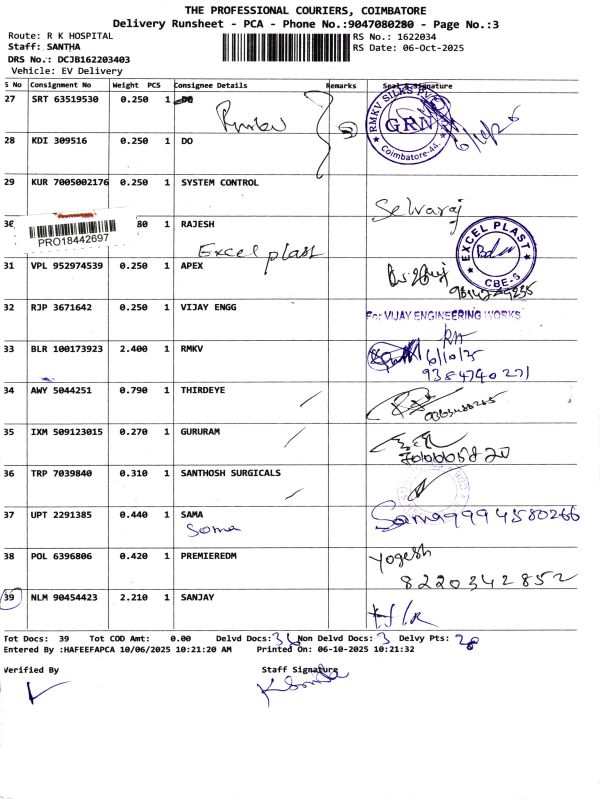 THE PROFESSIONAL COURIERS, COIMBATORE
Delivery Runsheet - PCA - Phone No.:9047080280 - Page No.:3
Route: R K HOSPITAL
Staff: SANTHA
DRS No.: DCJB162203403
Vehicle: EV Delivery
RS No.: 1622034
RS Date: 06-Oct-2025
S No Consignment No Weight PCS Consignee Details Remarks Seal & Signature
27 SRT 63519530 0.250 1 DO
RMKV SILKS GRN Coimbatore-44.
28 KDI 309516 0.250 1 DO
29 KUR 7005002176 0.250 1 SYSTEM CONTROL
Selvaraj
80 1 RAJESH
PRO18442697
Excel plast
EXCEL PLAST CBE-5
31 VPL 952974539 0.250 1 APEX
32 RJP 3671642 0.250 1 VIJAY ENGG
For VIJAY ENGINEERING WORKS
33 BLR 100173923 2.400 1 RMKV
6/10/25
9384740271
34 AWY 5044251 0.790 1 THIRDEYE
35 IXM 509123015 0.270 1 GURURAM
36 TRP 7039840 0.310 1 SANTHOSH SURGICALS
37 UPT 2291385 0.440 1 SAMA
Sama
Sama 9994580266
38 POL 6396806 0.420 1 PREMIEREDM
Yogesh
8220342852
39 NLM 90454423 2.210 1 SANJAY
Tot Docs: 39 Tot COD Amt: 0.00 Delvd Docs: 36 Non Delvd Docs: 3 Delvy Pts: 28
Entered By :HAFEEFAPCA 10/06/2025 10:21:20 AM Printed On: 06-10-2025 10:21:32
Verified By Staff Signature